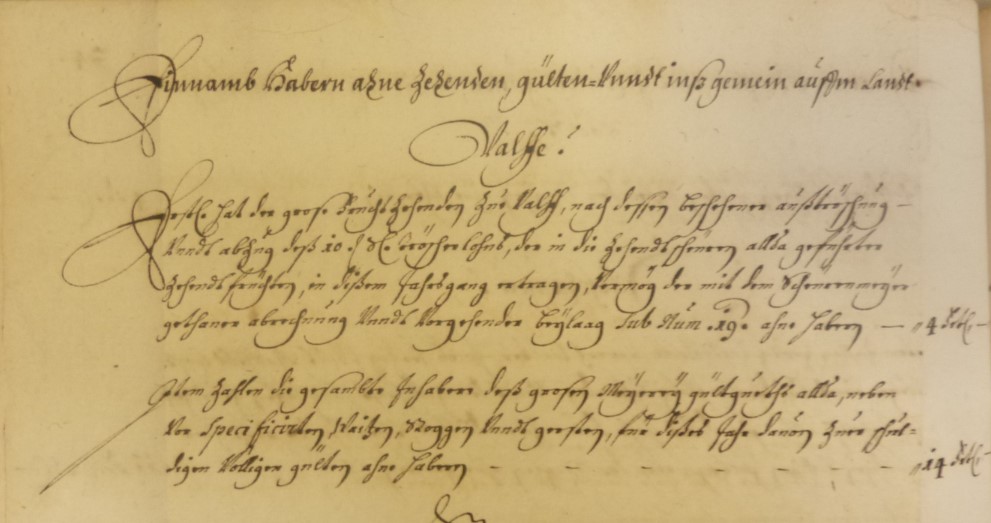 Einnamb Habern ahne Zehenden, gülten- Vnndt inß gemein auffm Landt.
Valffe.
Erstl. hat der große Frucht Zehenden Zue Valff, nach dessen beschehener außtröschung
Vnndt abzug deß 10. f. Tröscherlohns, der in die Zehendtscheüren allda geführter
Zehendtfrüchten, in dißem Jahrgang ertragen, Vermög der mit dem Scheürenmeyer
gethaner abrechnung Vnndt Vorgehender beylaag sub Num. 19. ahne habern — 4 frtl.
Item Zahlen die gesambte Inhabere deß großen Meyerey gültgueths allda, neben
Vor specificirten Waitzen, Roggen Vnndt gersten, für dißes Jahr davon Zuer schul=
digen Völligen gülten ahne habern - - - - - - 14 frtl.